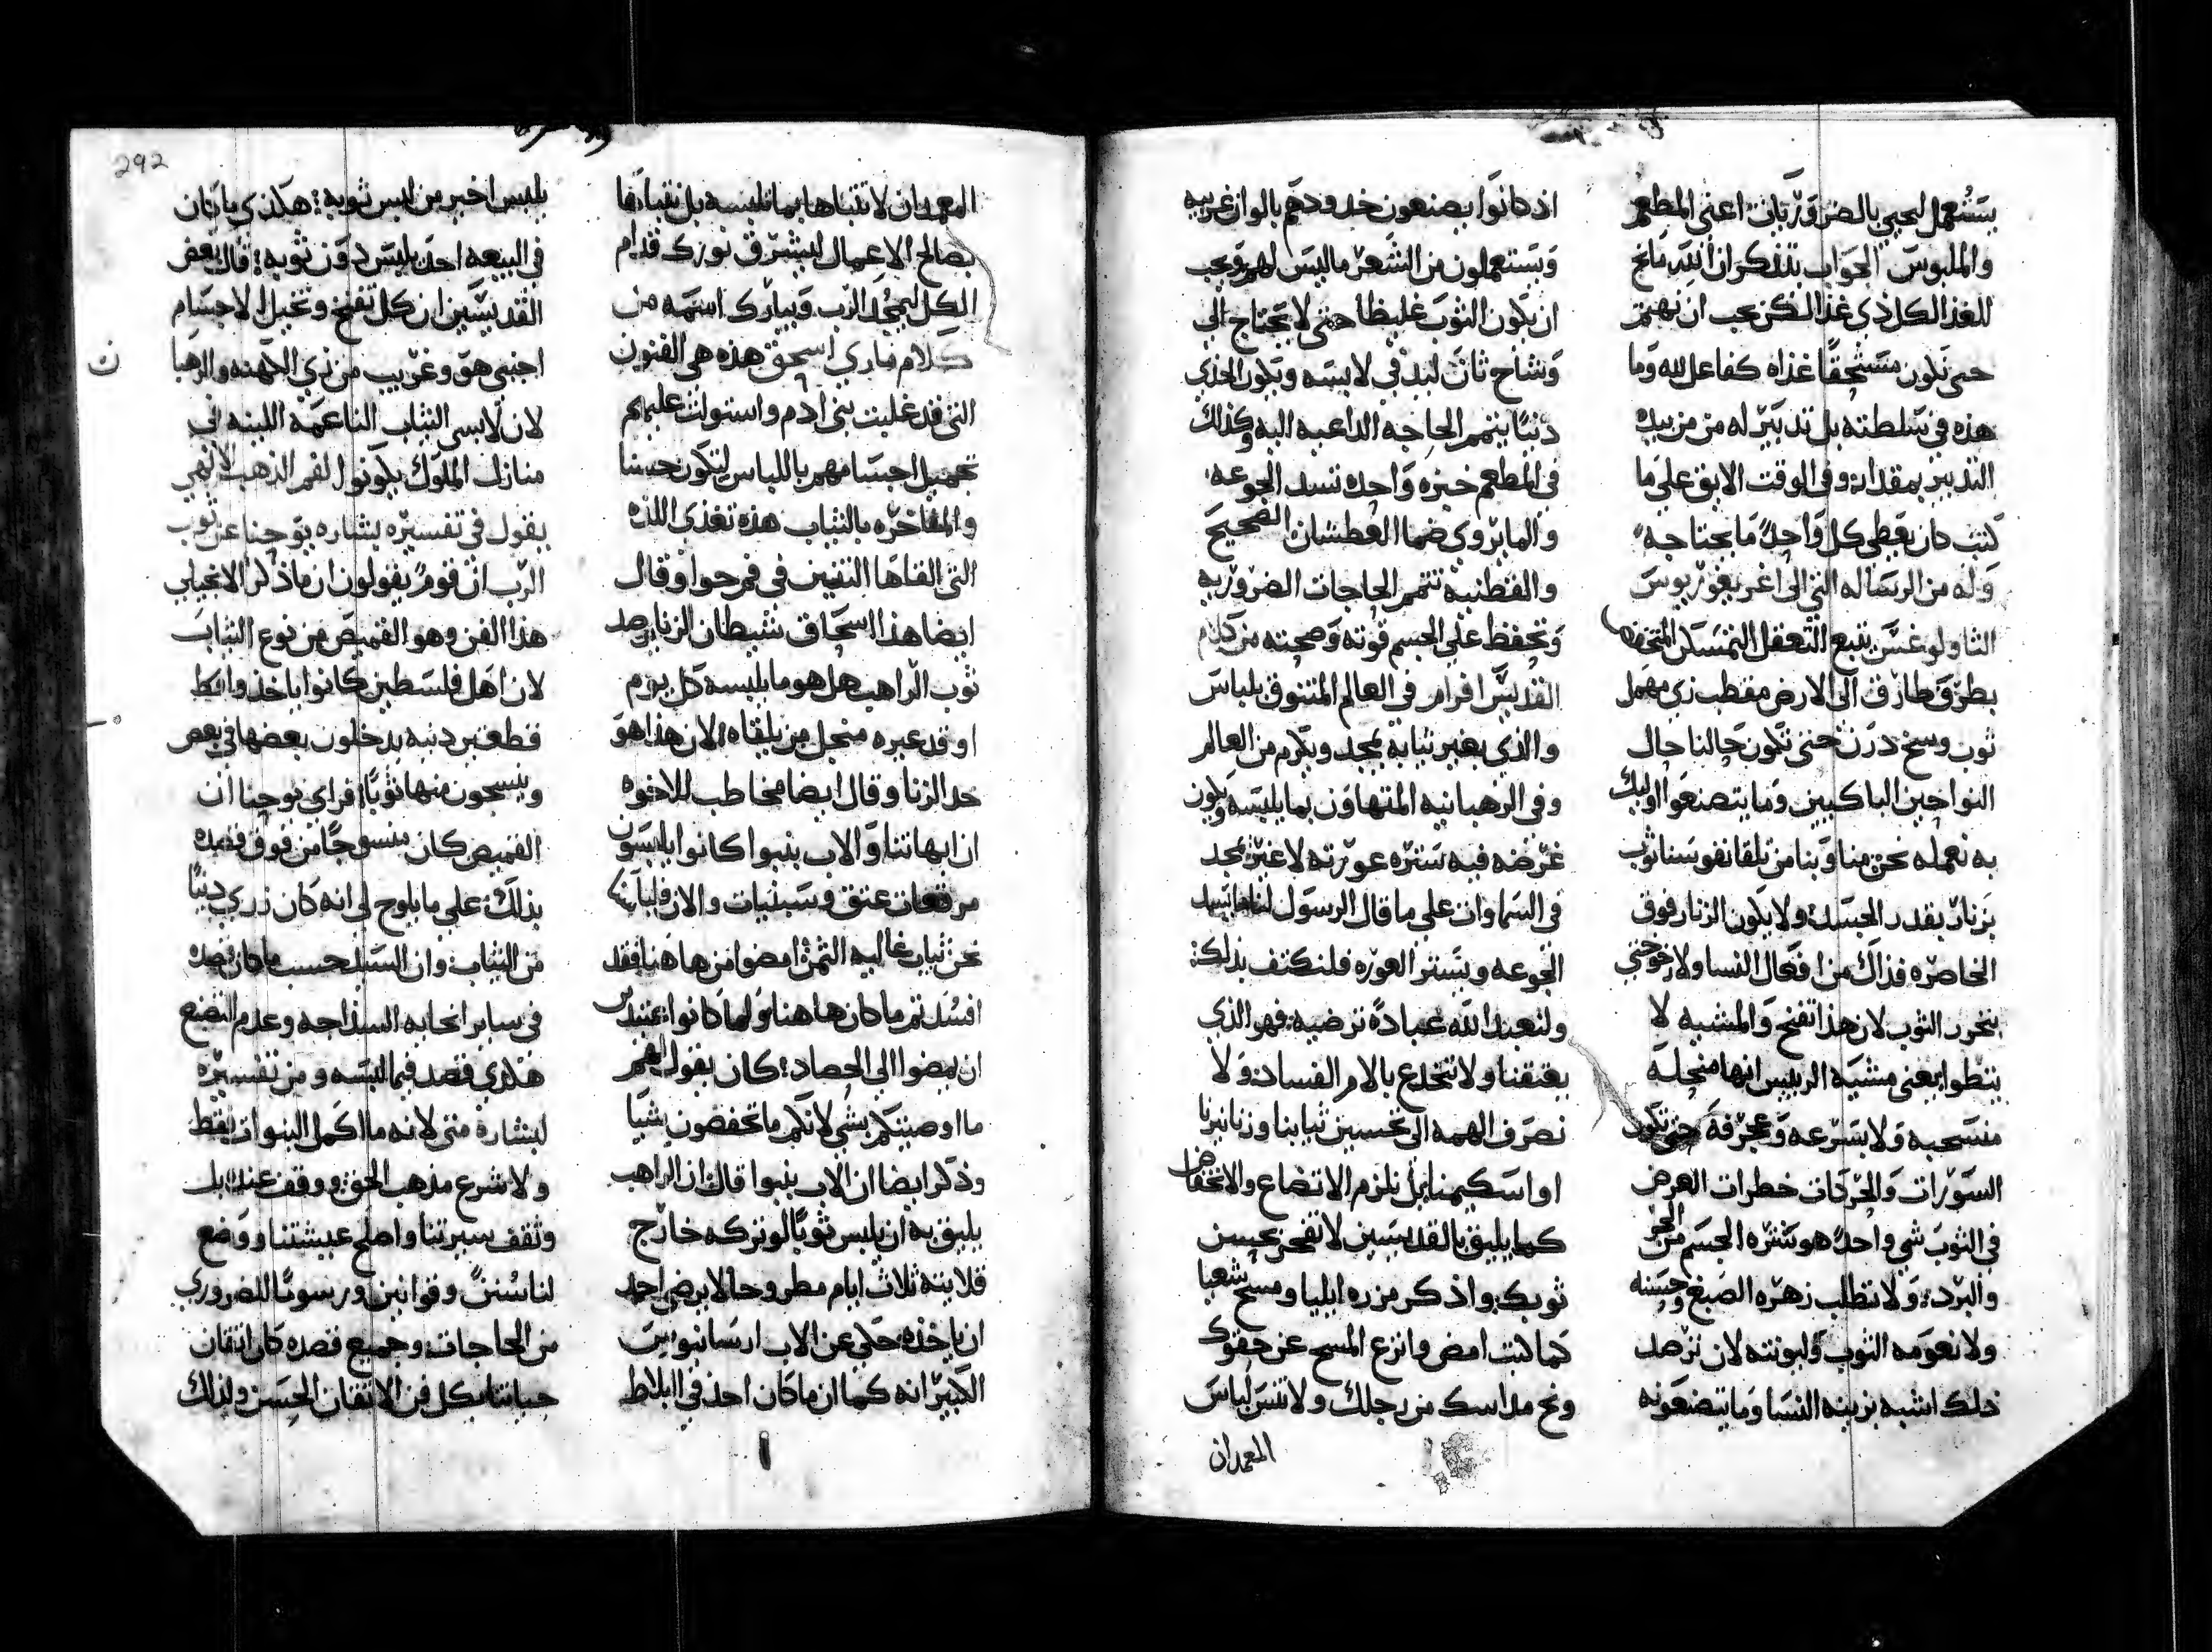 يستعمل ليحيي بالضروريات اعني المطعم
والملبوس الجواب بتذكر ان الله مانح
للغذا لكل ذي غذا لكن يجب ان نهتم
حتى نكون مستحقا غذاه كفاعل لله وما
هذه في سلطته بل تدبير له من من بيده
التدبير بمقدار وفي الوقت الايق على ما
كتب كان يعطى كل واحد ما يحتاجه
وله من الرساله التي الى اغريغوريوس
الثاولوغس يتبع التعقل التمسكن المتخفض
بطرف طارق الى الارض مقطب زي مهمل
ثوب وسخ درن حتى تكون حالنا حال
النواحين الباكيين وما يتصنعوا اوليك
به نعمله نحن منا وبنا من تلقا نفوسنا ثوب
بزنار بقدر الجسد ولا يكون الزنار فوق
الخاصره فذاك من افعال النسا ولا رخو حتى
يخرر الثوب لان هذا تفنح والمشيه لا
يتطوا يعني مشية الربليس انها منحله
منسحبه ولا بسرعه وعجرفة حتى تكون
السورات والحركات خطرات الغرض
في الثوب شي واحد هو ستره الجسم من الحر
والبرد ولا نطلب زهره الصبغ وحسنه
ولا نعومه الثوب وليونته لان نرصد
ذلك اشبه بزينه النسا وما يتصنعونه
اذ كانوا يصنعون خدودهم بالوان غريبه
ويستعملون من الشعر ما ليس لهم ويجب
ان يكون الثوب غليظا حتى لا يحتاج الى
وشاح ثان ليدفي لابسه ويكون الحذي
دنيا يتمم الحاجه الداعيه اليه وكذلك
في المطعم خبزه واحده تسد الجوعه
والما يروي ضما العطشان الصحيح
والقطنيه تتمم الحاجات الضروريه
وتحفظ على الجسم قوته وصحته من كلام
القديس افرام في العالم المتنوق بلباس
والذي بغير ثيابه يمجد ويكرم من العالم
وفي الرهبانيه المتهاون بما يلبسه ويكون
غرضه فيه ستره عورته لا غير يمجد
في السماوات على ما قال الرسول لنا ما يسد
الجوعه ويستر العوره فلنكتف بذلك
ولنعبد الله عبادة ترضيه فهو الذي
يعتقنا ولا تنخدع بالام الفساد ولا
نصرف الهمه الى تحسين ثيابنا وزنانيرنا
او اسكيمنا بل نلزم الاتضاع والانخفاض
كما يليق بالقديسين لا تفخر بحسن
ثوبك واذكر مزره ايليا ومسح شعيا
كما كتب امض وانزع المسح عن حقوك
ونح مداسك من رجلك ولا تنس لباس
المعمدان
292
المعمدان لا تتباها بما تلبسه بل نتباها
بصالح الاعمال ليشرق نورك قدام
الكل ليمجد الرب ويبارك اسمه من
كلام ماري اسحق هذه هي الفنون
التي قد غلبت بني ادم واستولت عليهم
تجميل اجسامهم باللباس ليكون حسنا
والمفاخره بالثياب هذه تغذي اللذه
التي القاها التنين في فم حوا وقال
ايضا هذا اسحاق شيطان الزنا يرصد
ثوب الراهب هل هو ما يلبسه كل يوم
او قد غيره منجل من يلقاه لان هذا هو
حد الزنا وقال ايضا مخاطب للاخوه
ان ابهاتنا والاب بنبوا كانوا يلبسون
مرقعات عتق وسبنيات والان
نحن ثياب غاليه الثمن امضوا من هاهنا فقد
افسدتم ما كان هاهنا ولما كانوا عتيدين
ان يمضوا الي الحصاد كان يقول لهم
ما اوصيتكم بشي لانكم ما تحفضون شيا
وذكر ايضا ان الاب بنبوا قال ان الراهب
يليق به ان يلبس ثوبا لو تركه خارج
قلايته ثلاث ايام مطروحا لا يرضى احد
ان ياخذه حكي عن الاب ارسانيوس
الكبير انه كما ان ما كان احد في البلاط
يلبس اخير من لبس ثوبه هكذي ما كان
في البيعه احد يلبس دون ثوبه قال بعض
القديسين ان كل تفنح وتحيل الاجسام
اجنبي هو وغريب من زي الكهنه والرهبا
ن
لان لابسي الثياب الناعمه اللينه في
منازل الملوك يكونوا لفم الذهب لانجي
يقول في تفسيره بشاره يوحنا عن ثوب
الرب ان قوم يقولون ان ما ذكر الانجيلي
هذا الفن وهو القميص من نوع الثياب
لان اهل فلسطين كانوا ياخذوا قط
قطعتين دنيه يدخلون بعضها في بعض
وينسجون منها ثوبا فراى يوحنا ان
القميص كان منسوجا من فوق قصده
بذلك على ما يلوح لي انه كان زري دنيا
من الثياب وان السيد حسب ما كان قصده
في ساير انحايه السذاجه وعدم التصنع
هكذي قصد فيما لبسه ومن تفسيره
لبشارة متى لانه ما اكمل النبوات فقط
ولا شرع مذهب الحق ووقف عنده بل
وثقف سيرتنا واصلح عيشتنا ووضع
لنا سنن وقوانين ورسوما للضروري
من الحاجات وجميع قصده كان اتقان
حياتنا بكل فن الاتقان الحسن ولذلك